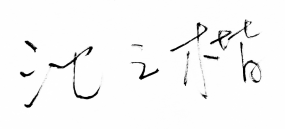 沈之楷